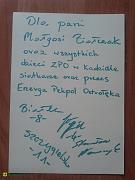 Dla pani
Małgosi Białczak
oraz wszystkich
dzieci ZPO w Kadzidle
siatkarze oraz prezes
Energa Pekpol Ostrołęka
-8-
-11-